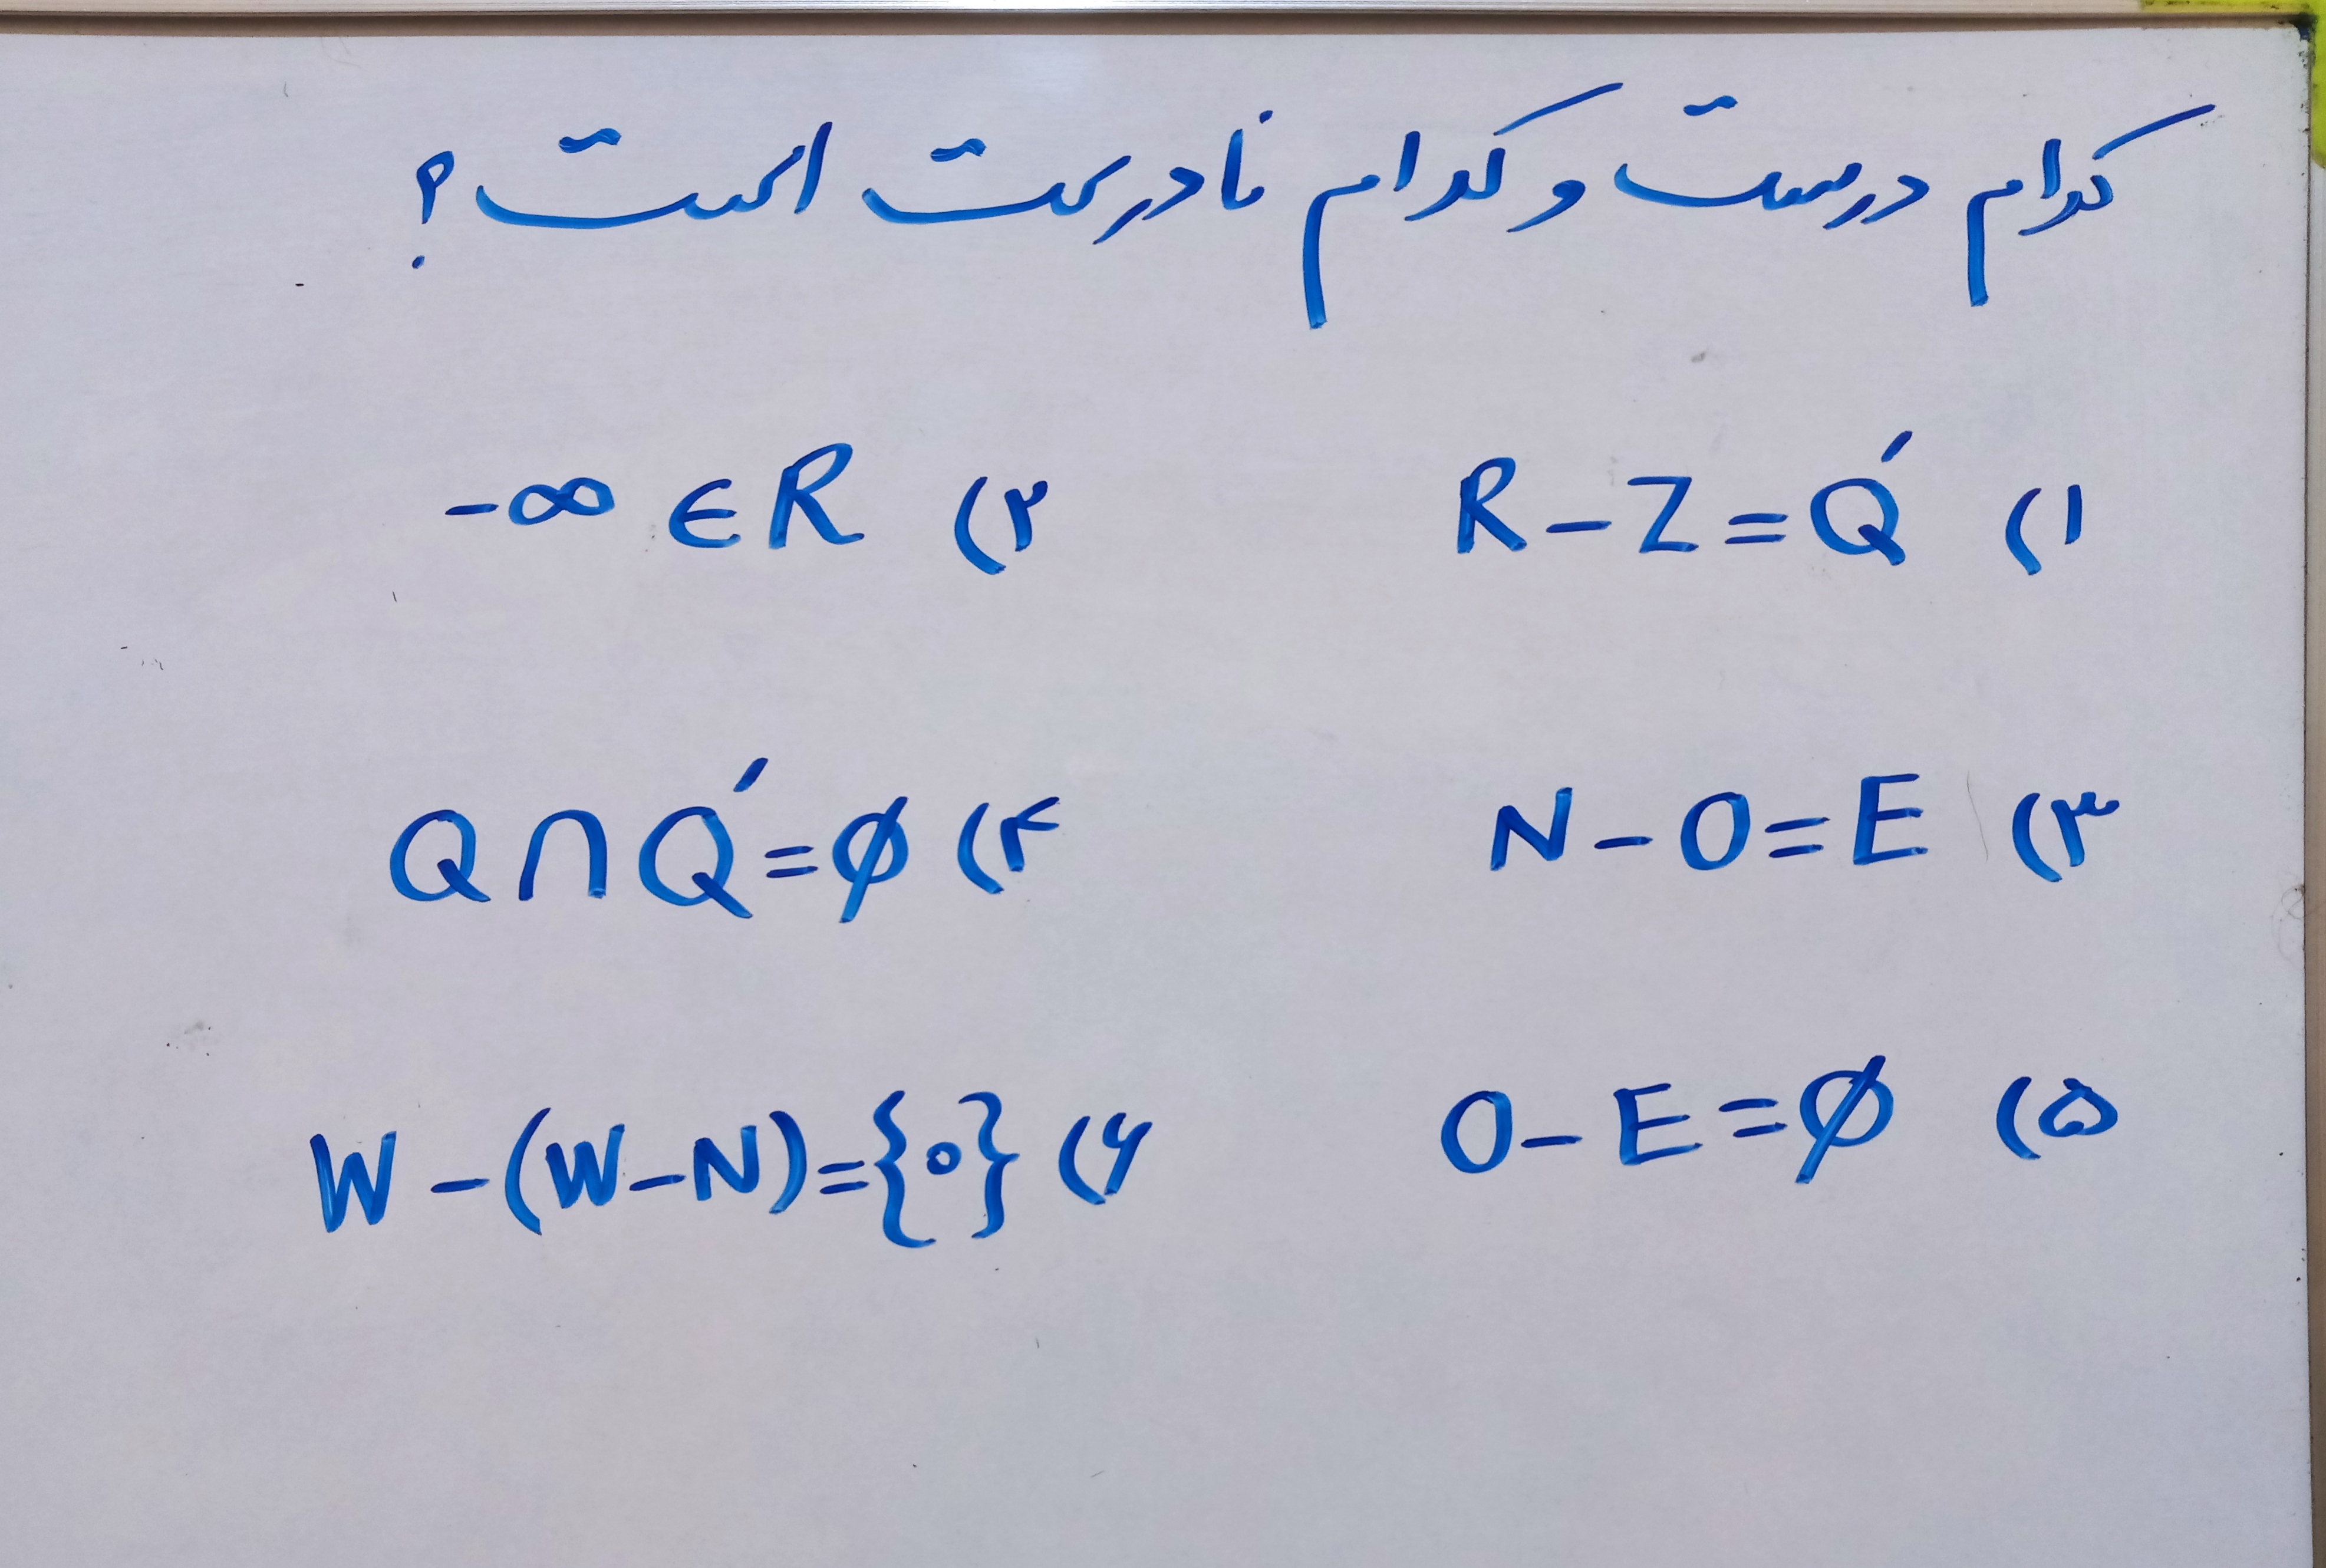 کدام درست و کدام نادرست است؟
۱) R - Z = Q′
۲) -∞ ∈ R
۳) N - O = E
۴) Q ∩ Q′ = ∅
۵) O - E = ∅
۶) W - (W - N) = {۰}